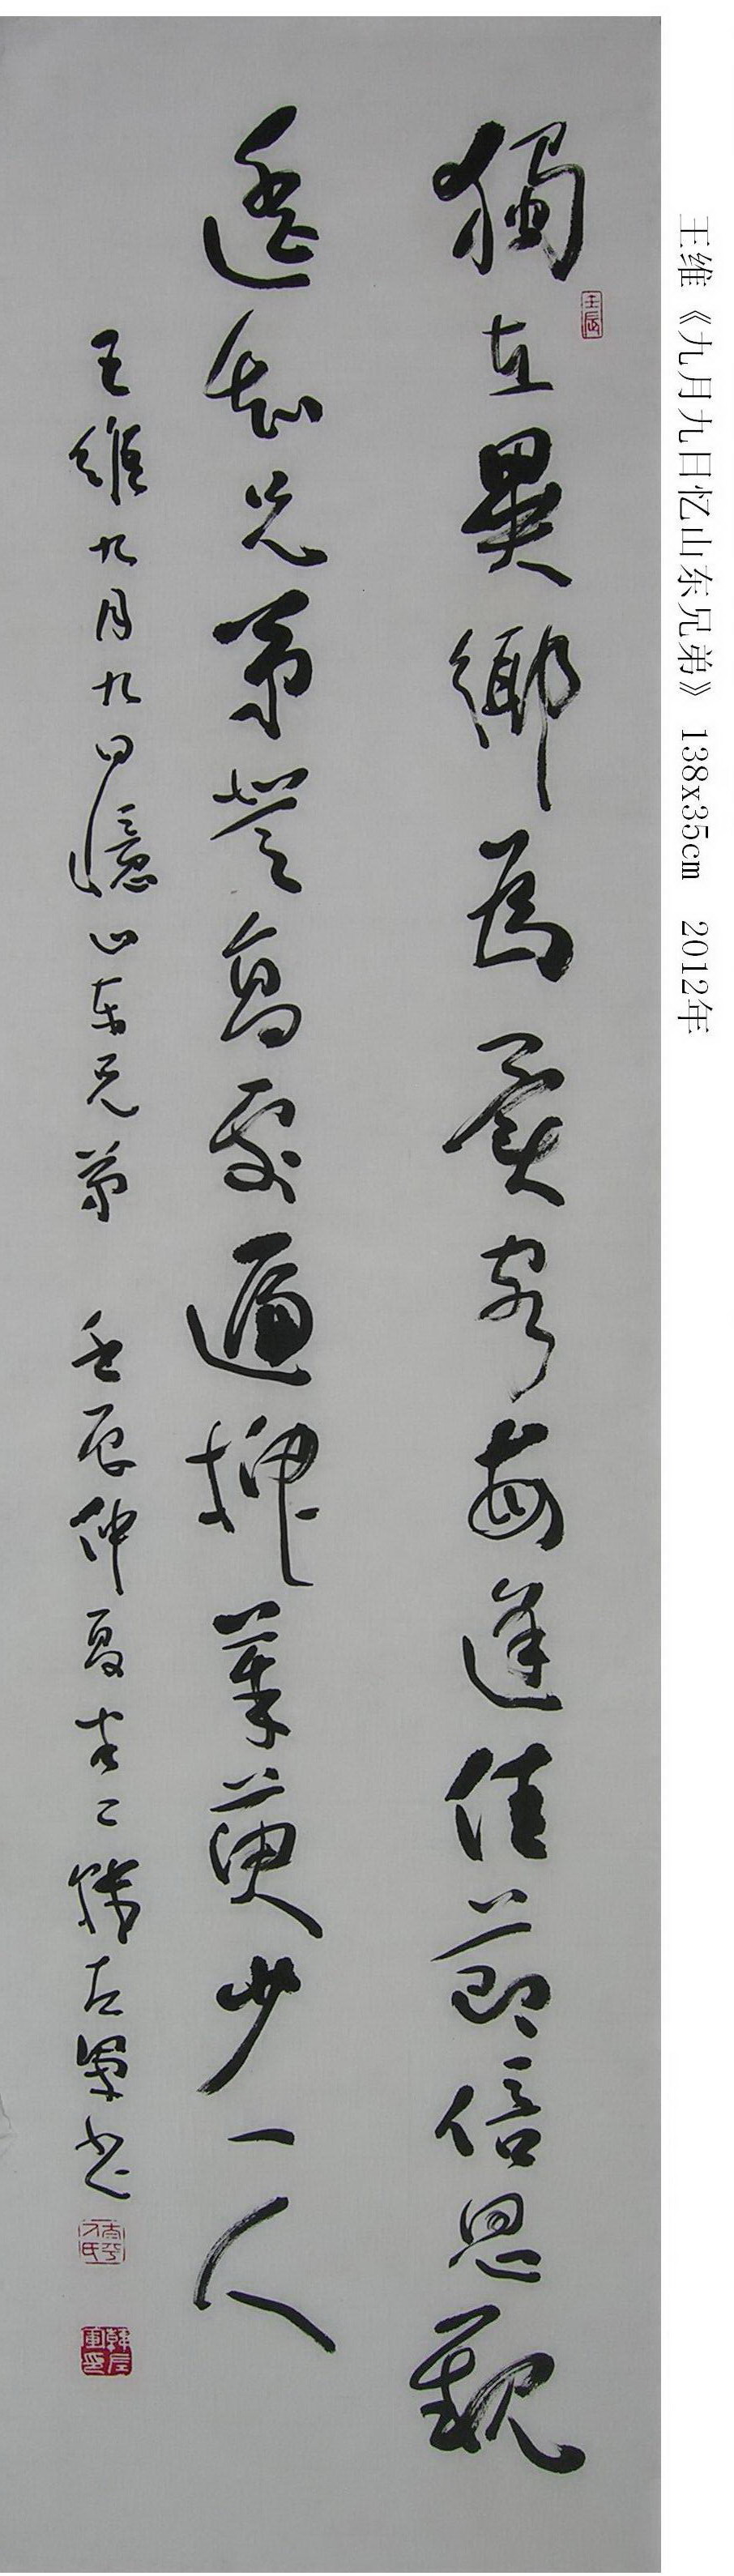 王维《九月九日忆山东兄弟》 138x35cm 2012年
獨在異鄉為異客每逢佳節倍思親
壬辰
遙知兄弟登高處遍插茱萸少一人
王維九月九日憶山東兄弟 壬辰仲夏韓左軍书
韓左軍印